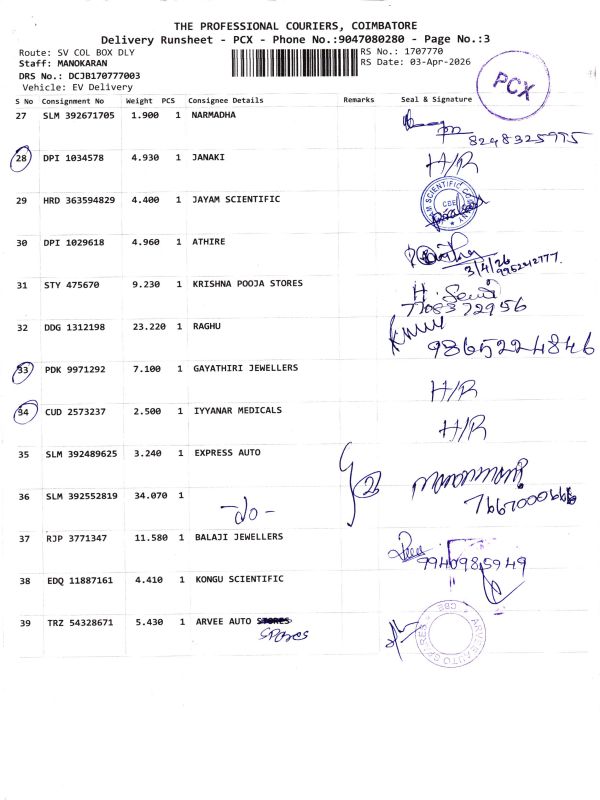 THE PROFESSIONAL COURIERS, COIMBATORE
Delivery Runsheet - PCX - Phone No.:9047080280 - Page No.:3
Route: SV COL BOX DLY
RS No.: 1707770
Staff: MANOKARAN
RS Date: 03-Apr-2026
DRS No.: DCJB170777003
Vehicle: EV Delivery
PCX
S No Consignment No Weight PCS Consignee Details Remarks Seal & Signature
27 SLM 392671705 1.900 1 NARMADHA
8248325975
28 DPI 1034578 4.930 1 JANAKI H/R
29 HRD 363594829 4.400 1 JAYAM SCIENTIFIC
CBE
30 DPI 1029618 4.960 1 ATHIRE
3/4/26
31 STY 475670 9.230 1 KRISHNA POOJA STORES
7708372956
32 DDG 1312198 23.220 1 RAGHU
9865224846
33 PDK 9971292 7.100 1 GAYATHIRI JEWELLERS H/R
34 CUD 2573237 2.500 1 IYYANAR MEDICALS H/R
35 SLM 392489625 3.240 1 EXPRESS AUTO
36 SLM 392552819 34.070 1 -do-
37 RJP 3771347 11.580 1 BALAJI JEWELLERS
9940985949
38 EDQ 11887161 4.410 1 KONGU SCIENTIFIC
39 TRZ 54328671 5.430 1 ARVEE AUTO STORES
Spares
ARVEE AUTO SPARES CBE